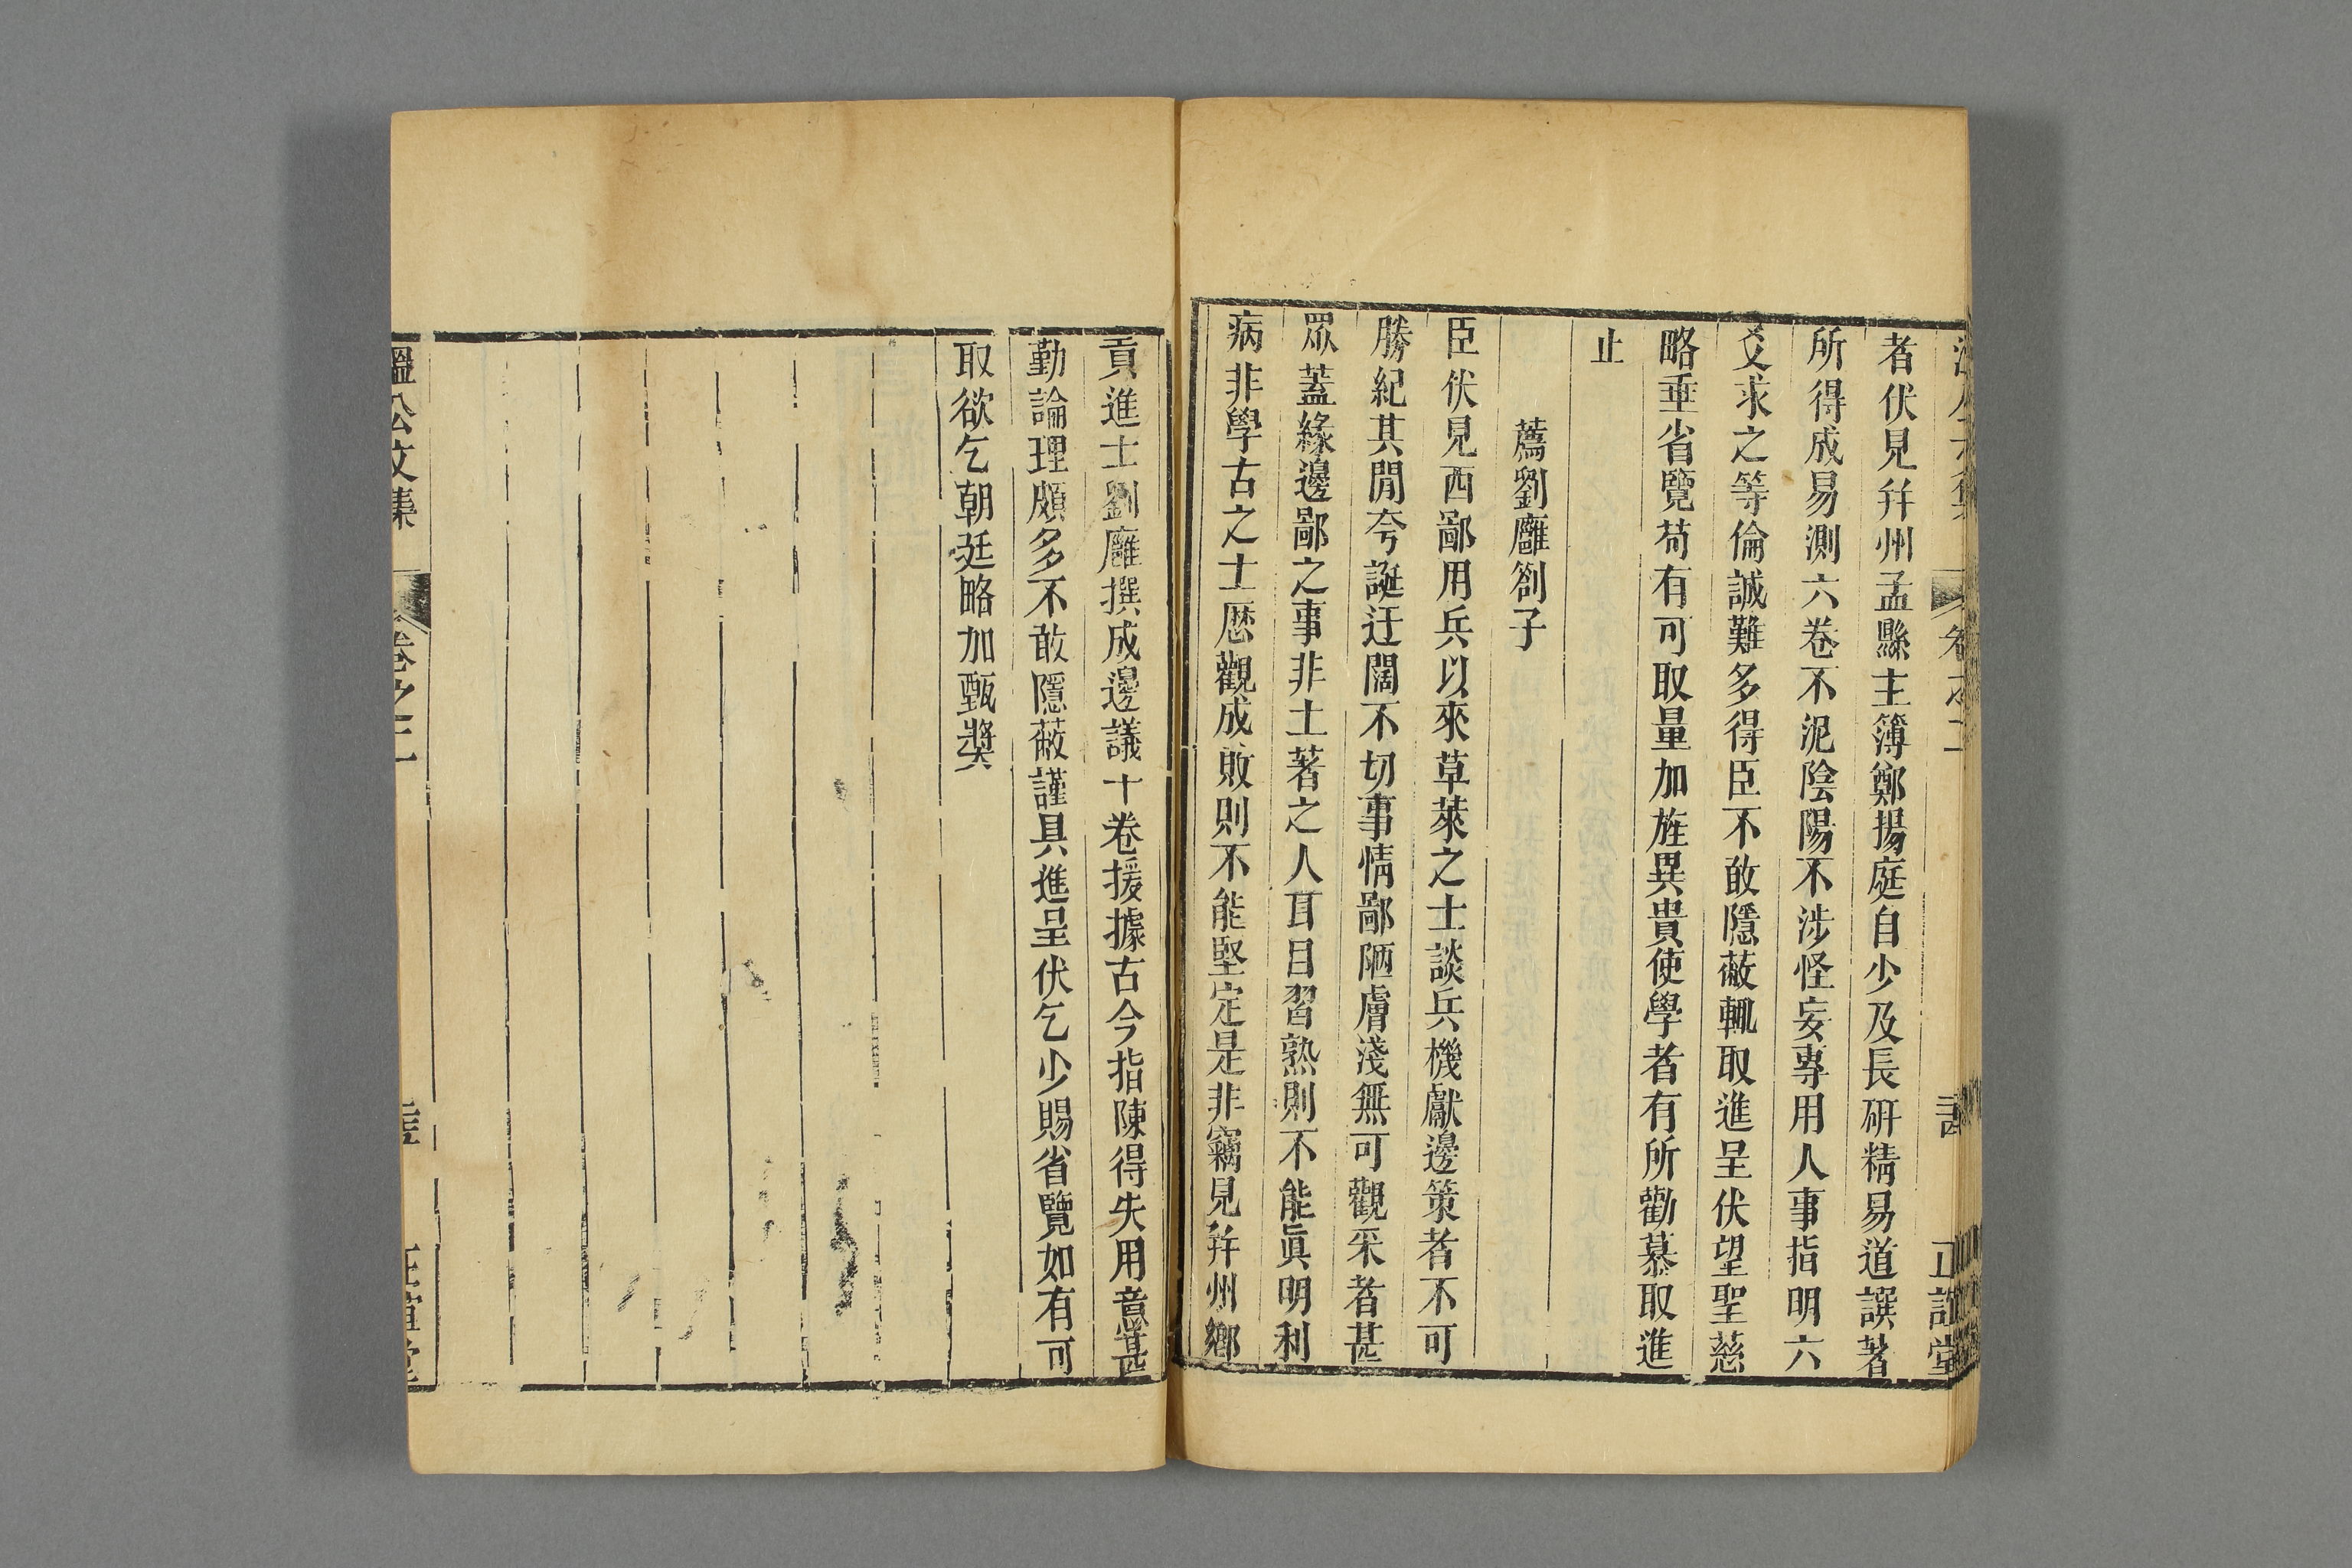 者伏見幷州孟縣主簿鄭揚庭自少及長硏精易道譔著
所得成易測六卷不泥陰陽不涉怪妄專用人事指明六
爻求之等倫誠難多得臣不敢隱蔽輒取進呈伏望聖慈
略垂省覽苟有可取量加旌異貴使學者有所勸慕取進
止
薦劉廱劄子
臣伏見西鄙用兵以來草萊之士談兵機獻邊策者不可
勝紀其閒夸誕迂闊不切事情鄙陋膚淺無可觀采者甚
眾蓋緣邊鄙之事非土著之人耳目習熟則不能眞明利
病非學古之士歷觀成敗則不能堅定是非竊見幷州鄉
貢進士劉廱撰成邊議十卷援據古今指陳得失用意甚
勤論理頗多不敢隱蔽謹具進呈伏乞少賜省覽如有可
取欲乞朝廷略加甄奬
溫公文集 卷之二